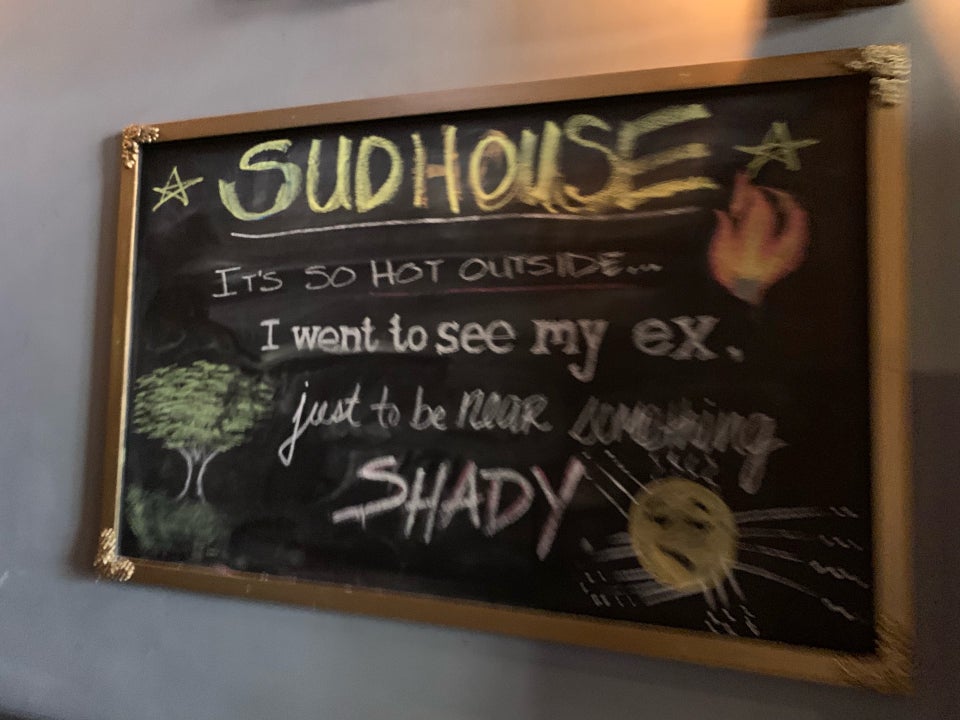 SUDHOUSE
IT'S SO HOT OUTSIDE...
I went to see my ex.
just to be near something
SHADY